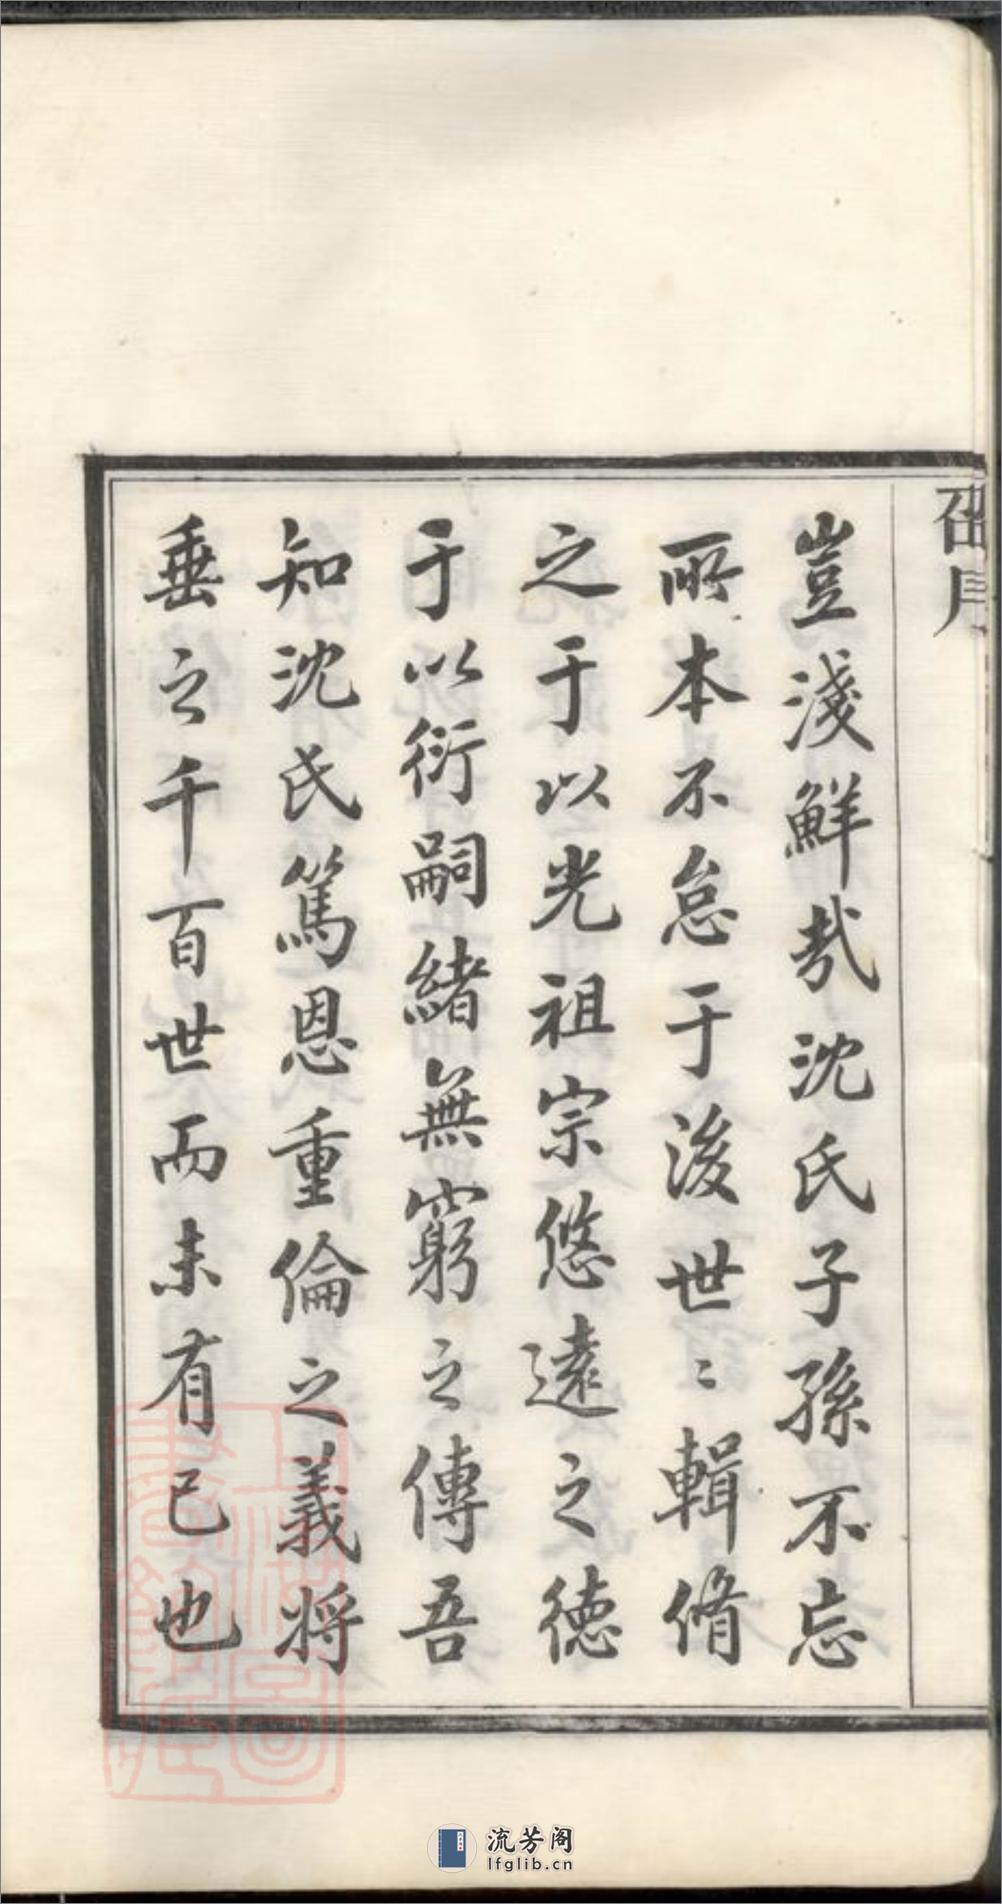 豈淺鮮哉沈氏子孫不忘
所本不怠于後世〻輯脩
之于以光祖宗悠遠之德
于以衍嗣緒無窮之傳吾
知沈氏篤恩重倫之義將
垂之千百世而未有已也
流芳阁
lfglib.cn